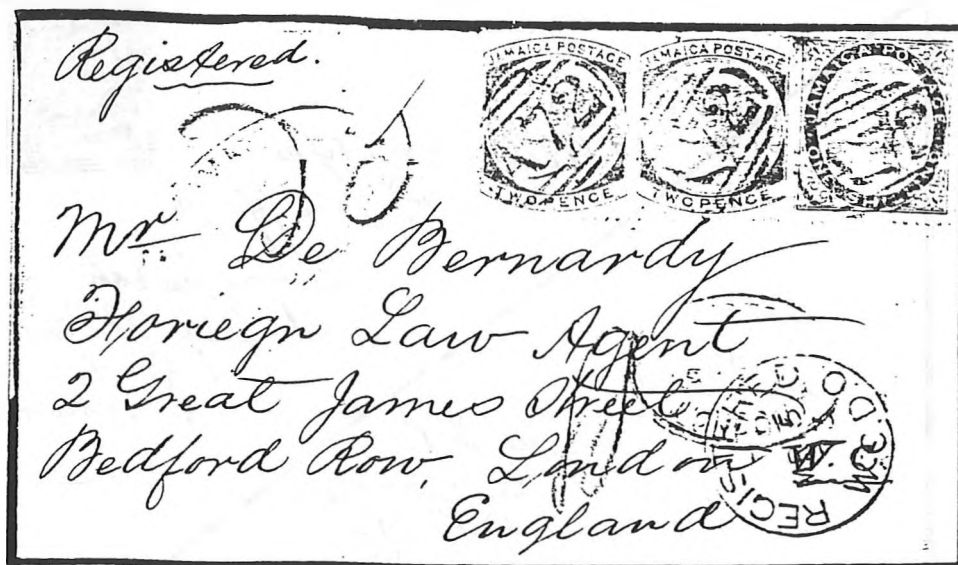 Registered.
JAMAICA POSTAGE
TWO PENCE
JAMAICA POSTAGE
TWO PENCE
JAMAICA POSTAGE
Mr De Bernardy
Foriegn Law Agent
2 Great James Street
Bedford Row, London
England